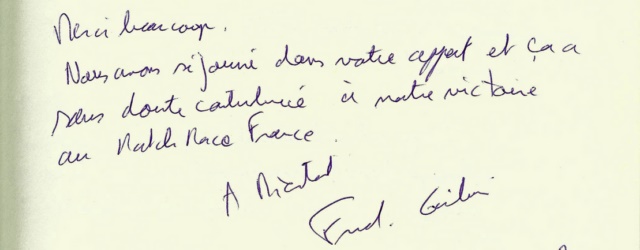 Merci beaucoup.
Nous avons séjourné dans votre appart et ça a
sans doute contribué à notre victoire
au Match Race France.
A Bientôt
Fred.